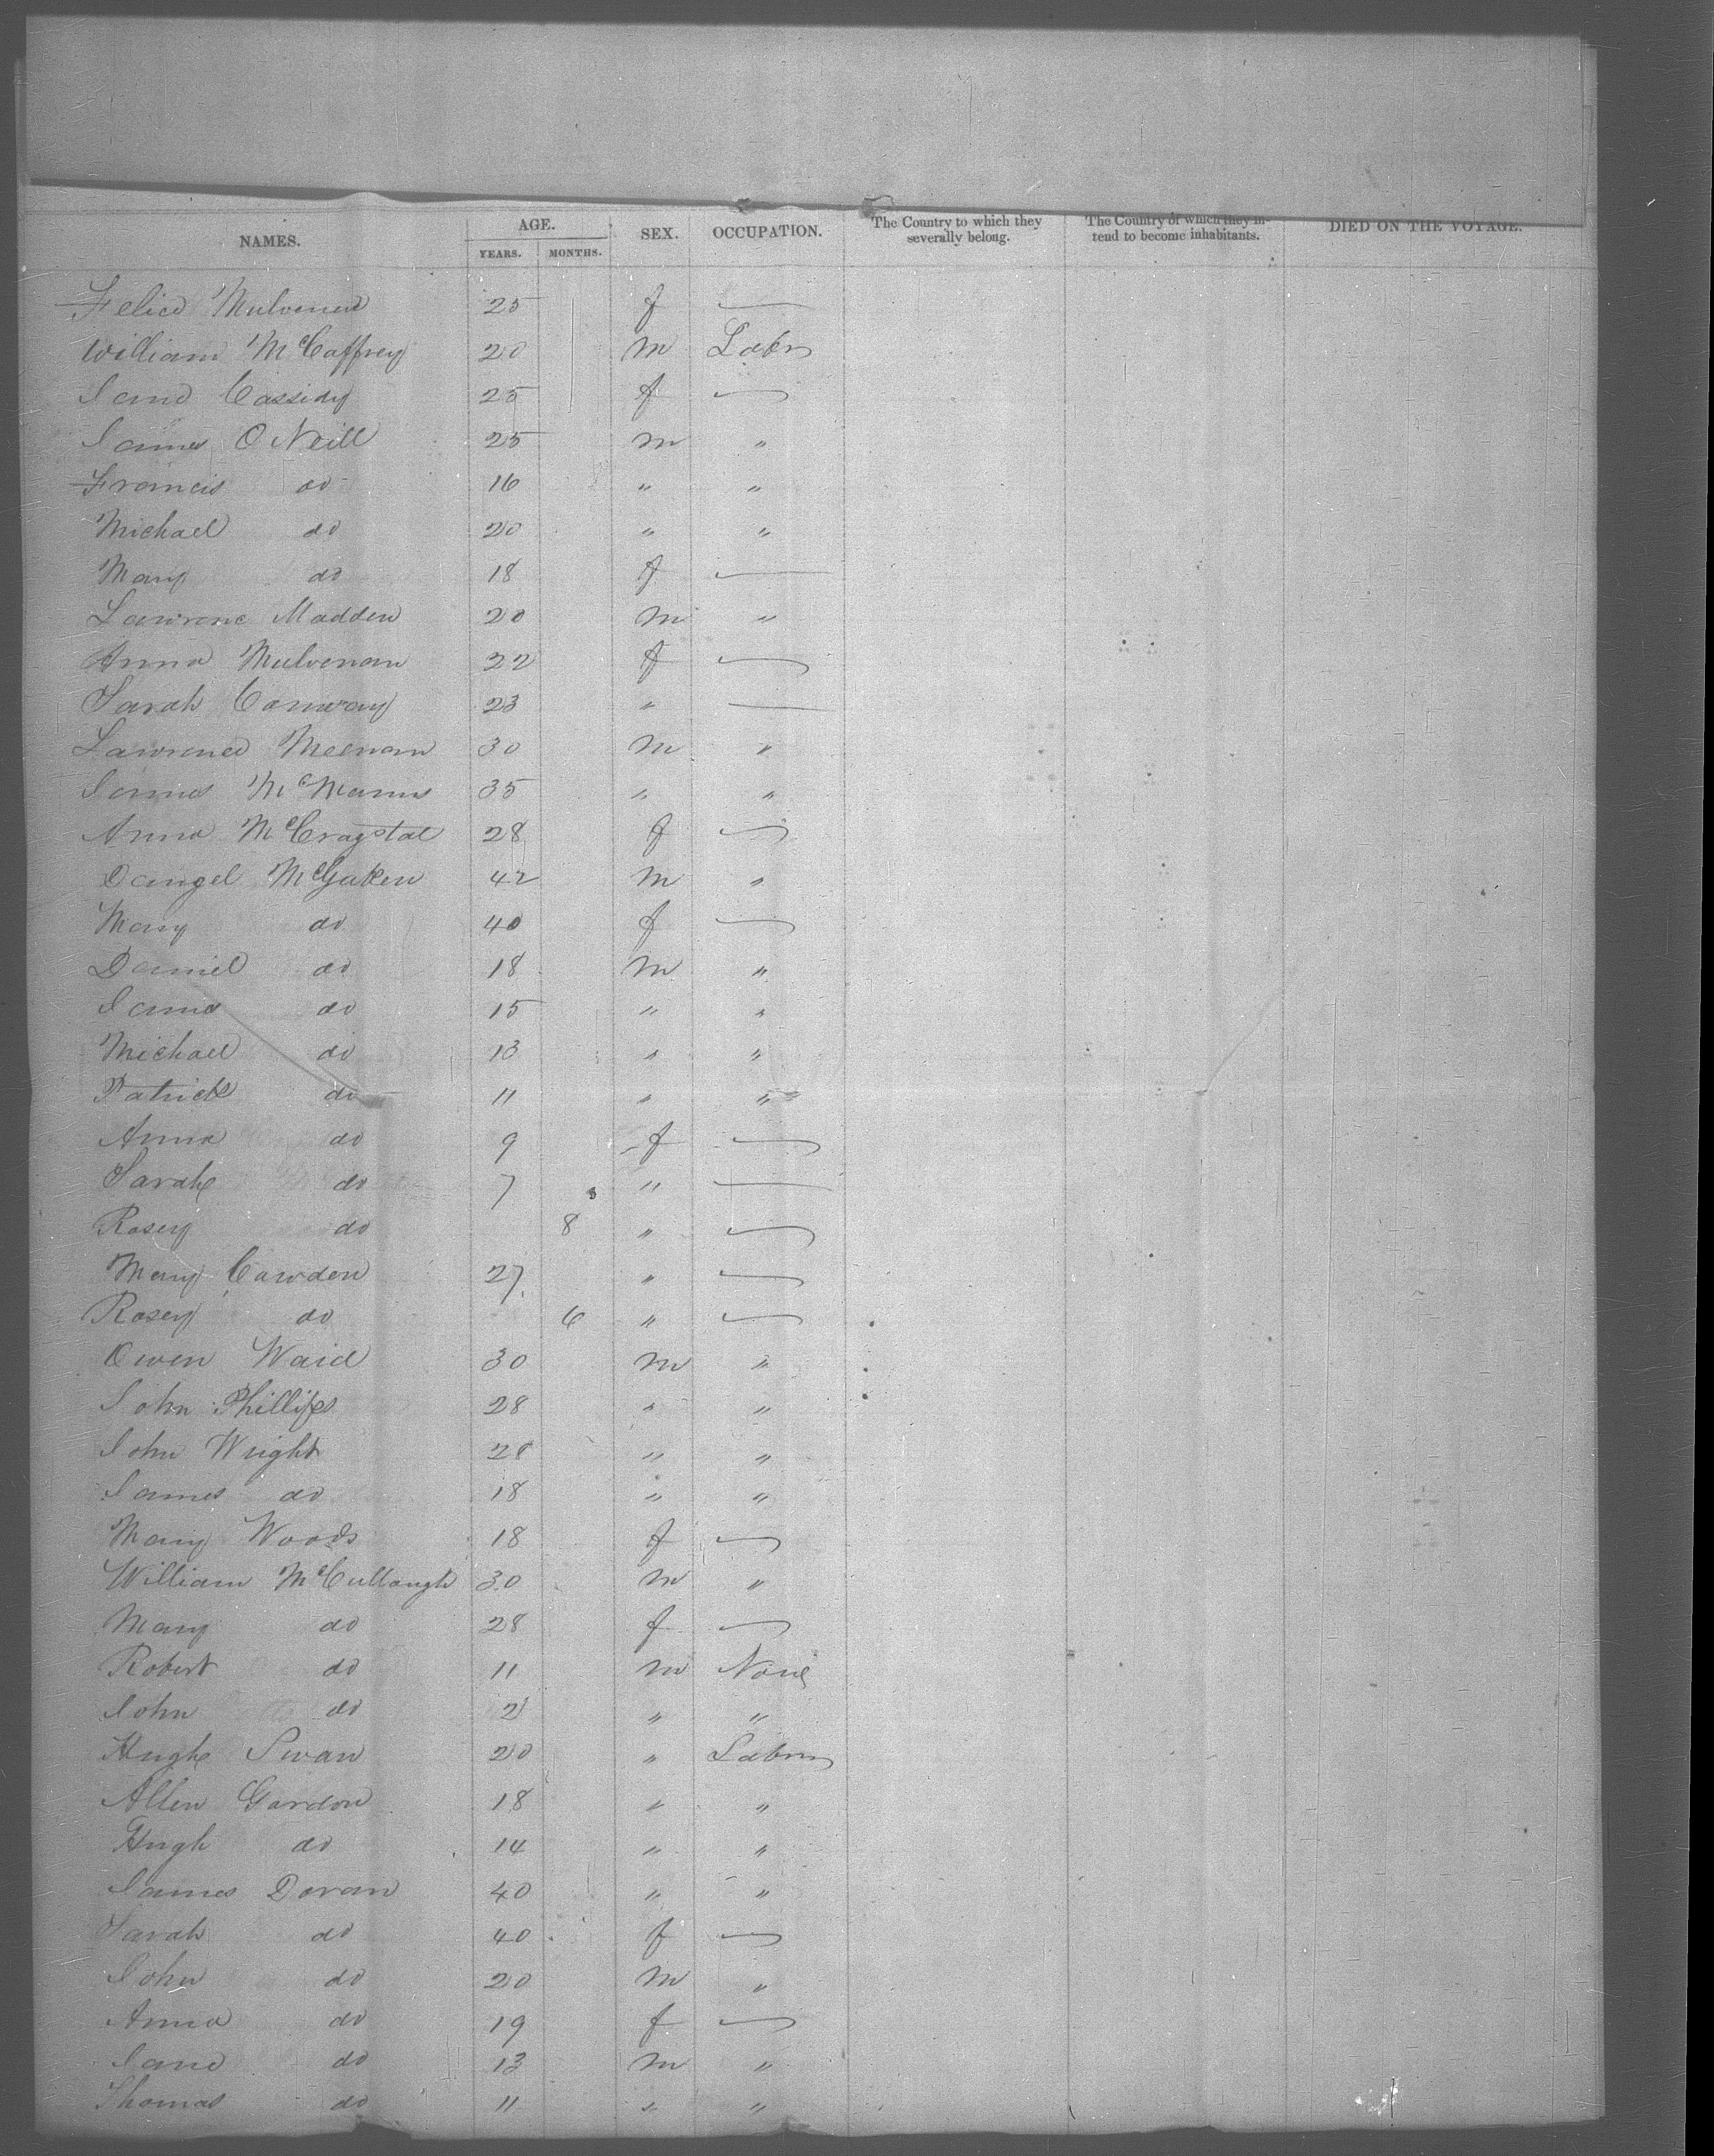 NAMES. AGE. SEX. OCCUPATION. The Country to which they severally belong. The Country of which they in- tend to become inhabitants. DIED ON THE VOYAGE.
YEARS. MONTHS.
25 f —
William McCaffrey 20 m Labr
Jane Cassidy 25 f —
James O Neill 25 m "
Francis do 16 " "
Michael do 20 " "
Mary do 18 f —
Lawrenc Madden 20 m "
Anna Mulvenan 22 f —
Sarah Conway 23 " —
Lawrence Meenan 30 m "
James McManus 35 " "
Anna 28 f —
42 m "
Mary do 40 f —
Daniel do 18 m "
do 15 " "
Michael do 13 " "
Patrick do 11 " "
Anna do 9 f —
Sarah do 7 " —
Rosey do 8 " —
Mary Cawden 27 " —
Rosey do 6 " —
Owen Waid 30 m "
John Phillips 28 " "
John Wright 28 " "
James do 18 " "
Mary Woods 18 f —
William McCullough 30 m "
Mary do 28 f —
Robert do 11 m None
John do 2 " "
Hugh Swan 20 " Labr
Allen Gordon 18 " "
Hugh do 14 " "
James Doran 40 " "
Sarah do 40 f —
John do 20 m "
Anna do 19 f —
Jane do 13 m "
Thomas do 11 " "